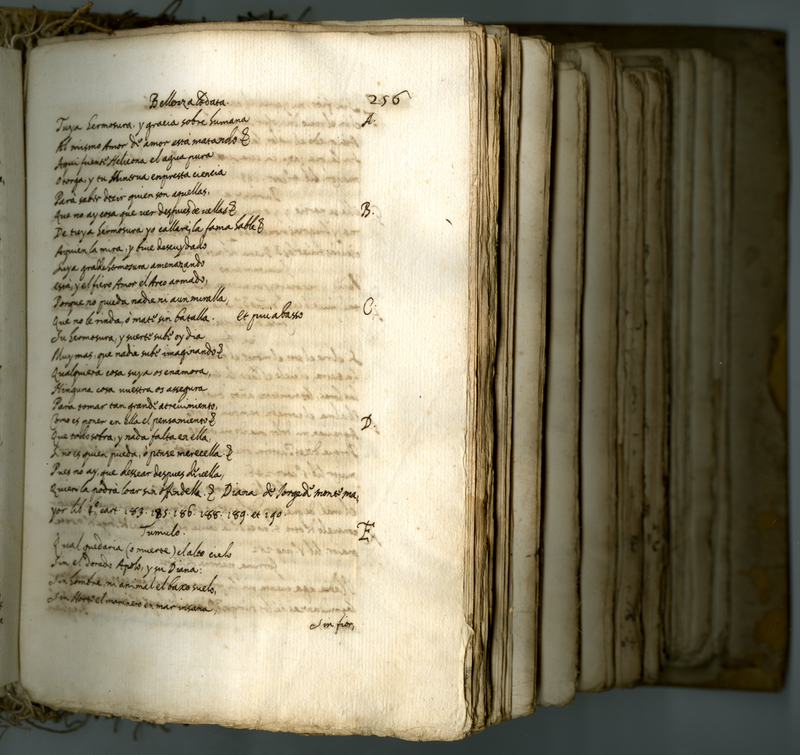 Bellezza lodata.
256
Tuya hermosura, y gracia sobre humana
A.
Al mismo Amor de amor està matando
Aqui fuente Heliciona el agua pura
Otorga, y tu Minerva enpresta ciencia
Para saber dezir quien son aquellas,
Que no ay cosa que ver despues de vellas
B.
De tuya hermosura yo callarè, la fama hable
Aquien la mira, y bive descuydado
Suya grande hermosura amenazando
està, y el fiero Amor el Arco armado,
Porque no pueda nadie ni aun miralla,
Que no le rinda, ò mate sin batalla. et piu abasso
C.
Su hermosura, y suerte sube oy dia
Muy mas, que nadie sube imaginando
Qualquiera cosa suya os enamora,
Ninguna cosa vuestra os assegura
Para tomar tan grande atrevimiento,
Como es poner en ella el pensamiento
D.
Que todo sobra, y nada falta en ella,
I no es quien pueda, ò pense merecella
Pues no ay, que dessear despues de vella,
Quien la podrà loar sin ofendella. Diana de Jorge de monte ma,
yor lib. 4.º cart. 183. 185. 186. 188. 189. et 190.
E
Tumulo.
Qual quedaria (o muerte) el alto cielo
Sin el dorado Apolo, y su Diana:
Sin hombre, ni animal el baxo suelo,
Sin Norte el marinero en mar insana,
Sin flor,